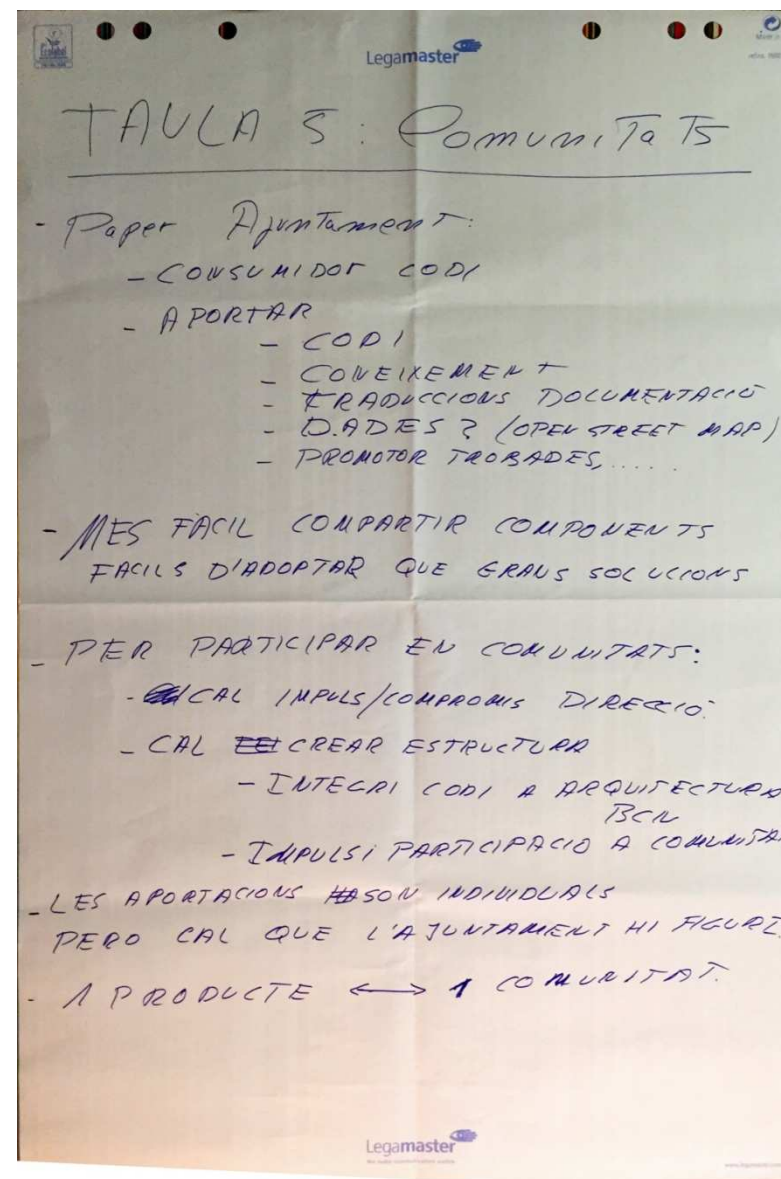 Legamaster
TAULA 5: Comunitats
- Paper Ajuntament:
- CONSUMIDOr CODI
- APORTAR
- CODI
- CONEIXEMENT
- TRADUCCIONS DOCUMENTACIÓ
- DADES? (OPEN STREET MAP)
- PROMOTOR TROBADES,.....
- MES FACIL COMPARTIR COMPONENTS
FACILS D'ADOPTAR QUE GRANS SOLUCIONS
- PER PARTICIPAR EN COMUNITATS:
- CAL IMPULS/COMPROMIS DIRECCIÓ.
- CAL CREAR ESTRUCTURA
- INTEGRI CODI A ARQUITECTURA
BCN
- IMPULSi PARTICIPACIO A COMUNITA
- LES APORTACIONS SON INDIVIDUALS
PERO CAL QUE L'AJUNTAMENT HI FIGURI.
- 1 PRODUCTE ↔ 1 COMUNITAT.
Legamaster